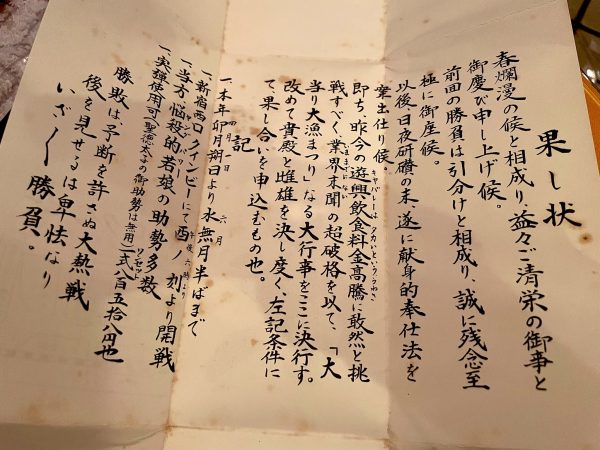 果し状
春爛漫の候と相成り、益々ご清栄の御事と
御慶び申し上げ候。
前回の勝負は引分けと相成り、誠に残念至
極に御座候。
以後日夜研鑽の末、遂に献身的奉仕法を
案出仕り候。
キャバレーはタカいというウワサ
即ち、昨今の遊興飲食料金高騰に敢然と挑
戦すべく、業界未聞の超破格を以て、「大
当り大漁まつり」なる大行事をここに決行す。
改めて貴殿と雌雄を決し度く、左記条件に
て、果し合いを申込むもの也。
記
四月一日 六月
一、本年卯月朔日より水無月半ばまで
午後六時より
一、新宿西口クインビーにて酉ノ刻より開戦
一、当方、悩殺的若娘の助勢多数
ワンセット
一、実弾使用可(聖徳太子の御助勢は無用)一式八百五拾八円也
勝敗は、予断を許さぬ大熱戦
後を見せるは卑怯なり
いざ〱勝負。